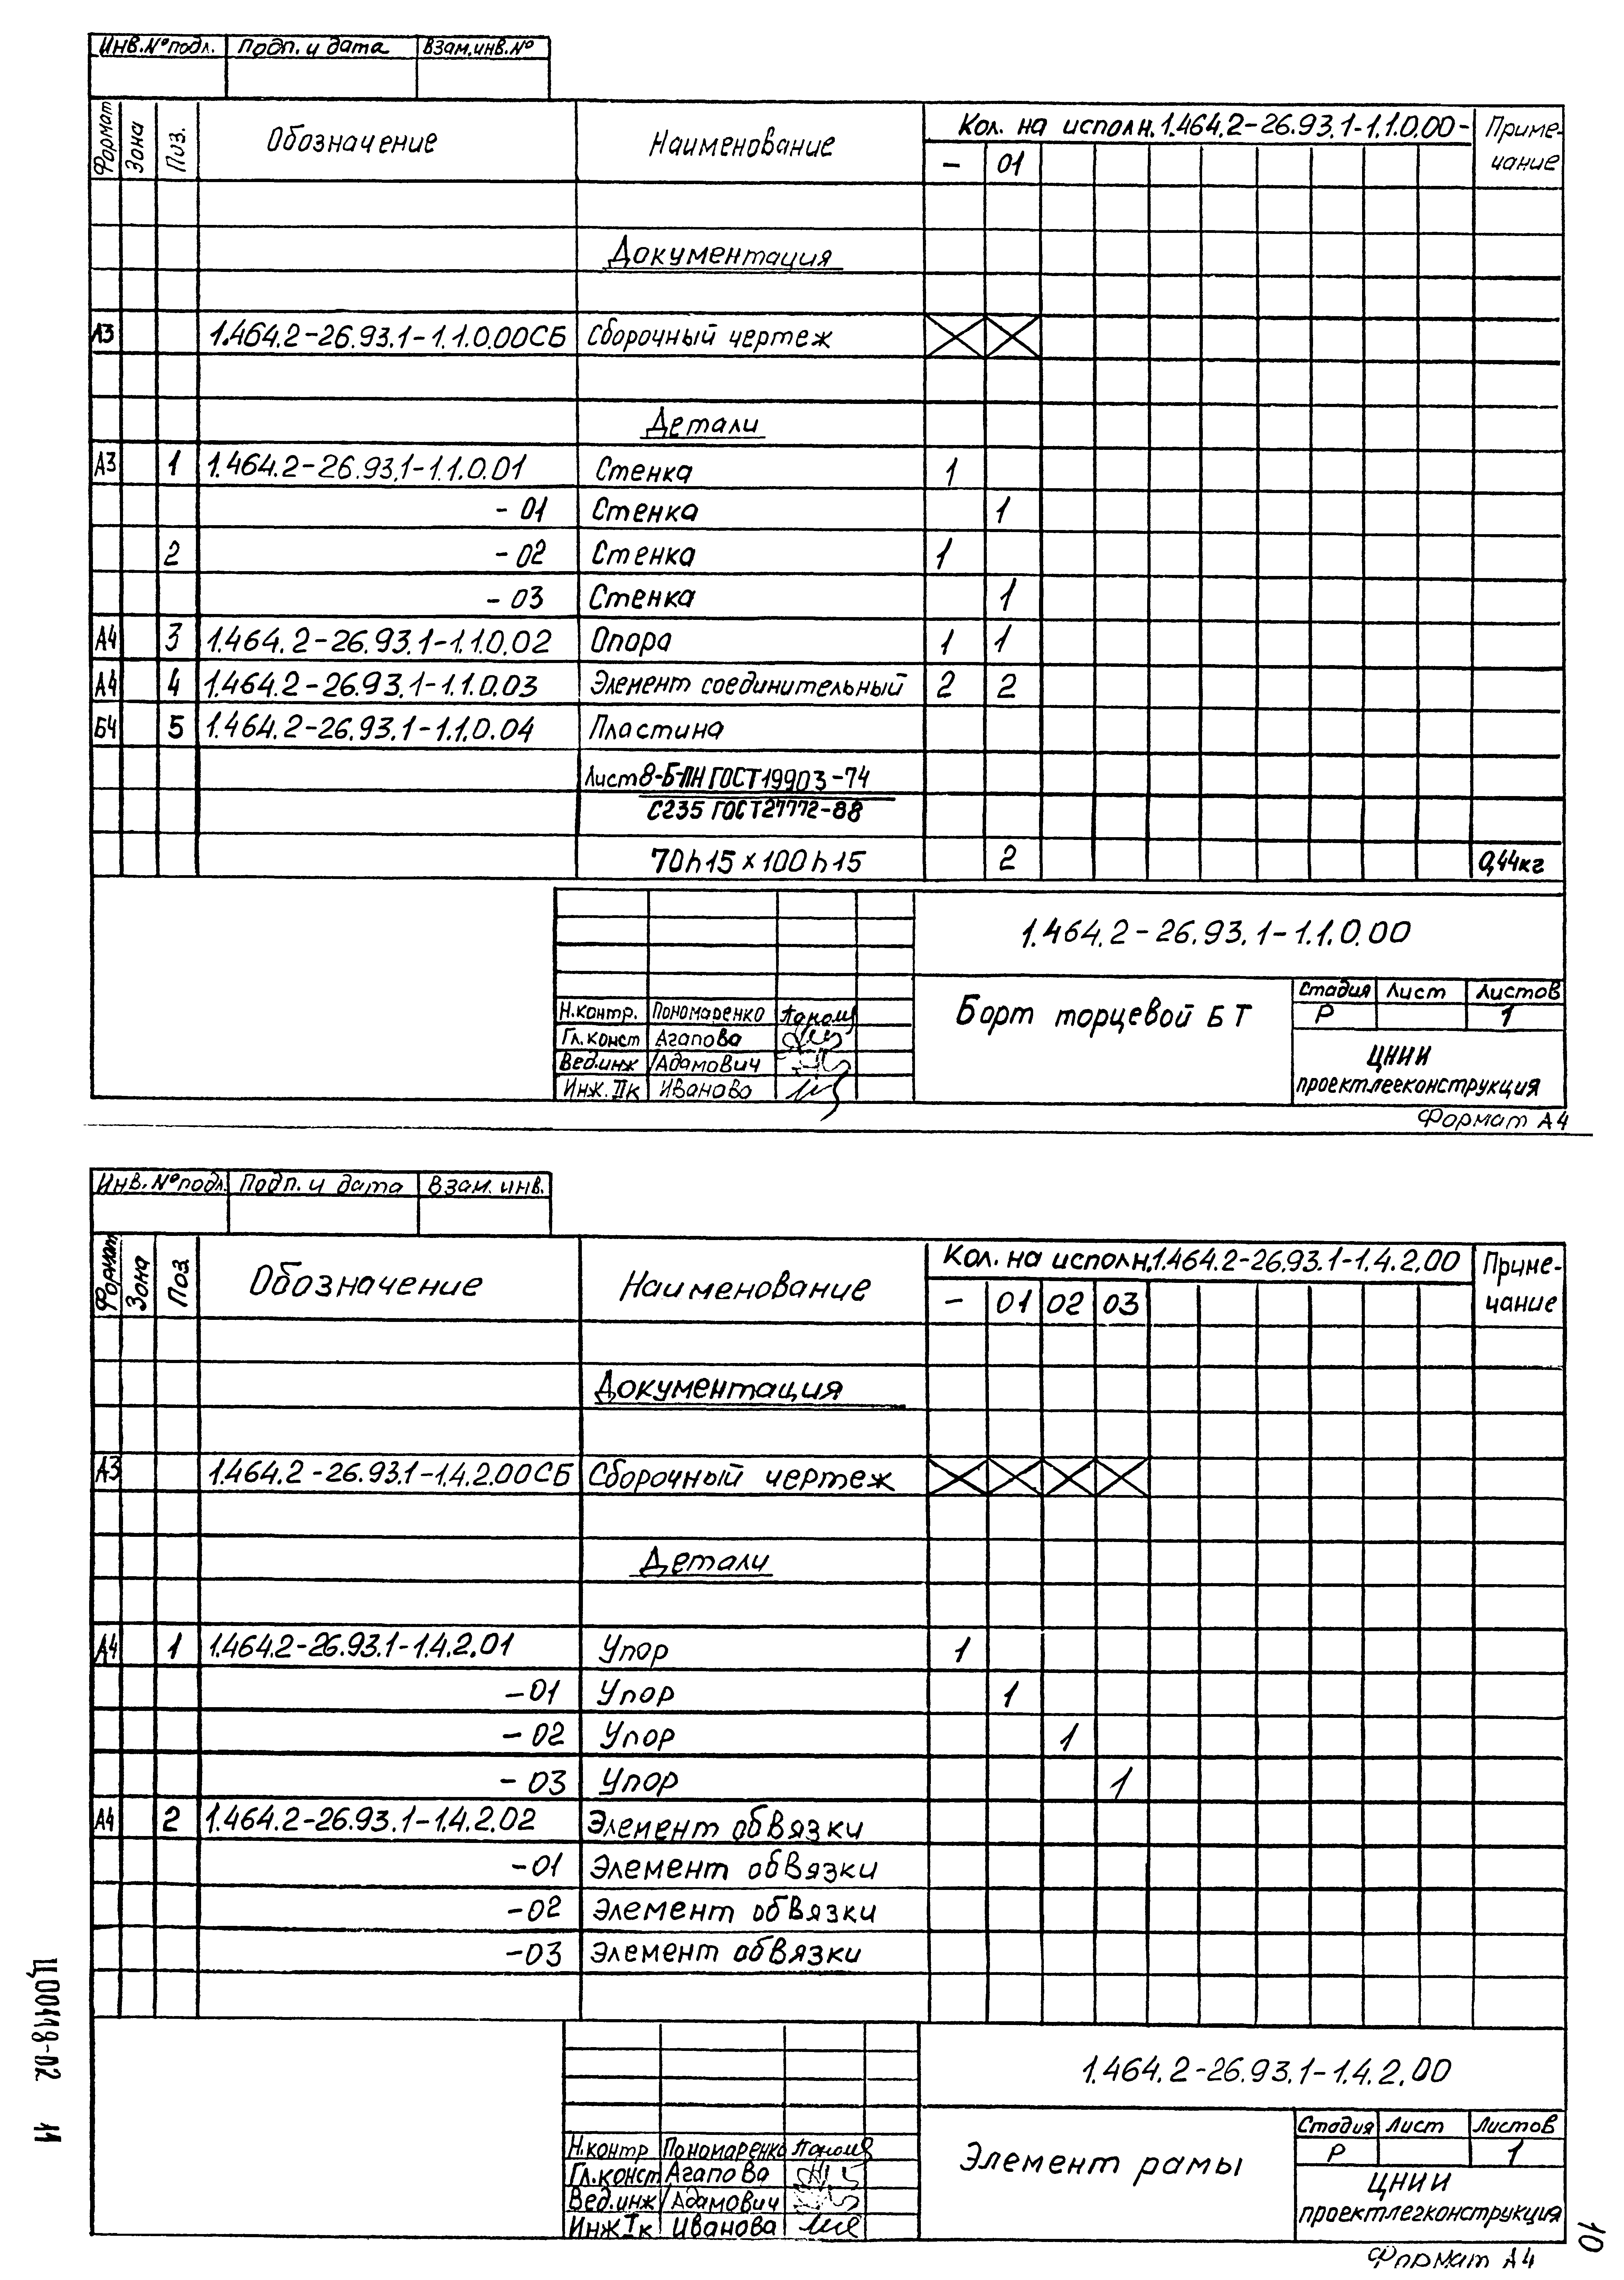 Инв.№подл. Подп. и дата Взам.инв.№
Формат Зона Поз. Обозначение Наименование Кол. на исполн.1.464.2-26.93.1-1.1.0.00- Приме-
чание
- 01
Документация
А3 1.464.2-26.93.1-1.1.0.00СБ Сборочный чертеж
Детали
А3 1 1.464.2-26.93.1-1.1.0.01 Стенка 1
-01 Стенка 1
2 -02 Стенка 1
-03 Стенка 1
А4 3 1.464.2-26.93.1-1.1.0.02 Опора 1 1
А4 4 1.464.2-26.93.1-1.1.0.03 Элемент соединительный 2 2
Б4 5 1.464.2-26.93.1-1.1.0.04 Пластина
Лист 8-Б-ПН ГОСТ 19903-74
С235 ГОСТ 27772-88
70h15 x 100h15 2 0,44кг
1.464.2-26.93.1-1.1.0.00
Н.контр. Пономаренко
Гл.конст Агапова
Вед.инж Адамович
Инж. IIк Иванова
Борт торцевой БТ
Стадия Лист Листов
Р 1
ЦНИИ
проектлегконструкция
Формат А4
Инв. №подл. Подп. и дата Взам. инв.
Формат Зона Поз Обозначение Наименование Кол. на исполн.1.464.2-26.93.1-1.4.2.00 Приме-
чание
- 01 02 03
Документация
А3 1.464.2-26.93.1-1.4.2.00СБ Сборочный чертеж
Детали
А4 1 1.464.2-26.93.1-1.4.2.01 Упор 1
-01 Упор 1
-02 Упор 1
-03 Упор 1
А4 2 1.464.2-26.93.1-1.4.2.02 Элемент обвязки
-01 Элемент обвязки
-02 Элемент обвязки
-03 Элемент обвязки
1.464.2-26.93.1-1.4.2.00
Н.контр Пономаренко
Гл.конст Агапова
Вед.инж Адамович
Инж Iк Иванова
Элемент рамы
Стадия Лист Листов
Р 1
ЦНИИ
проектлегконструкция
Формат А4
Ц00418-02 11
10